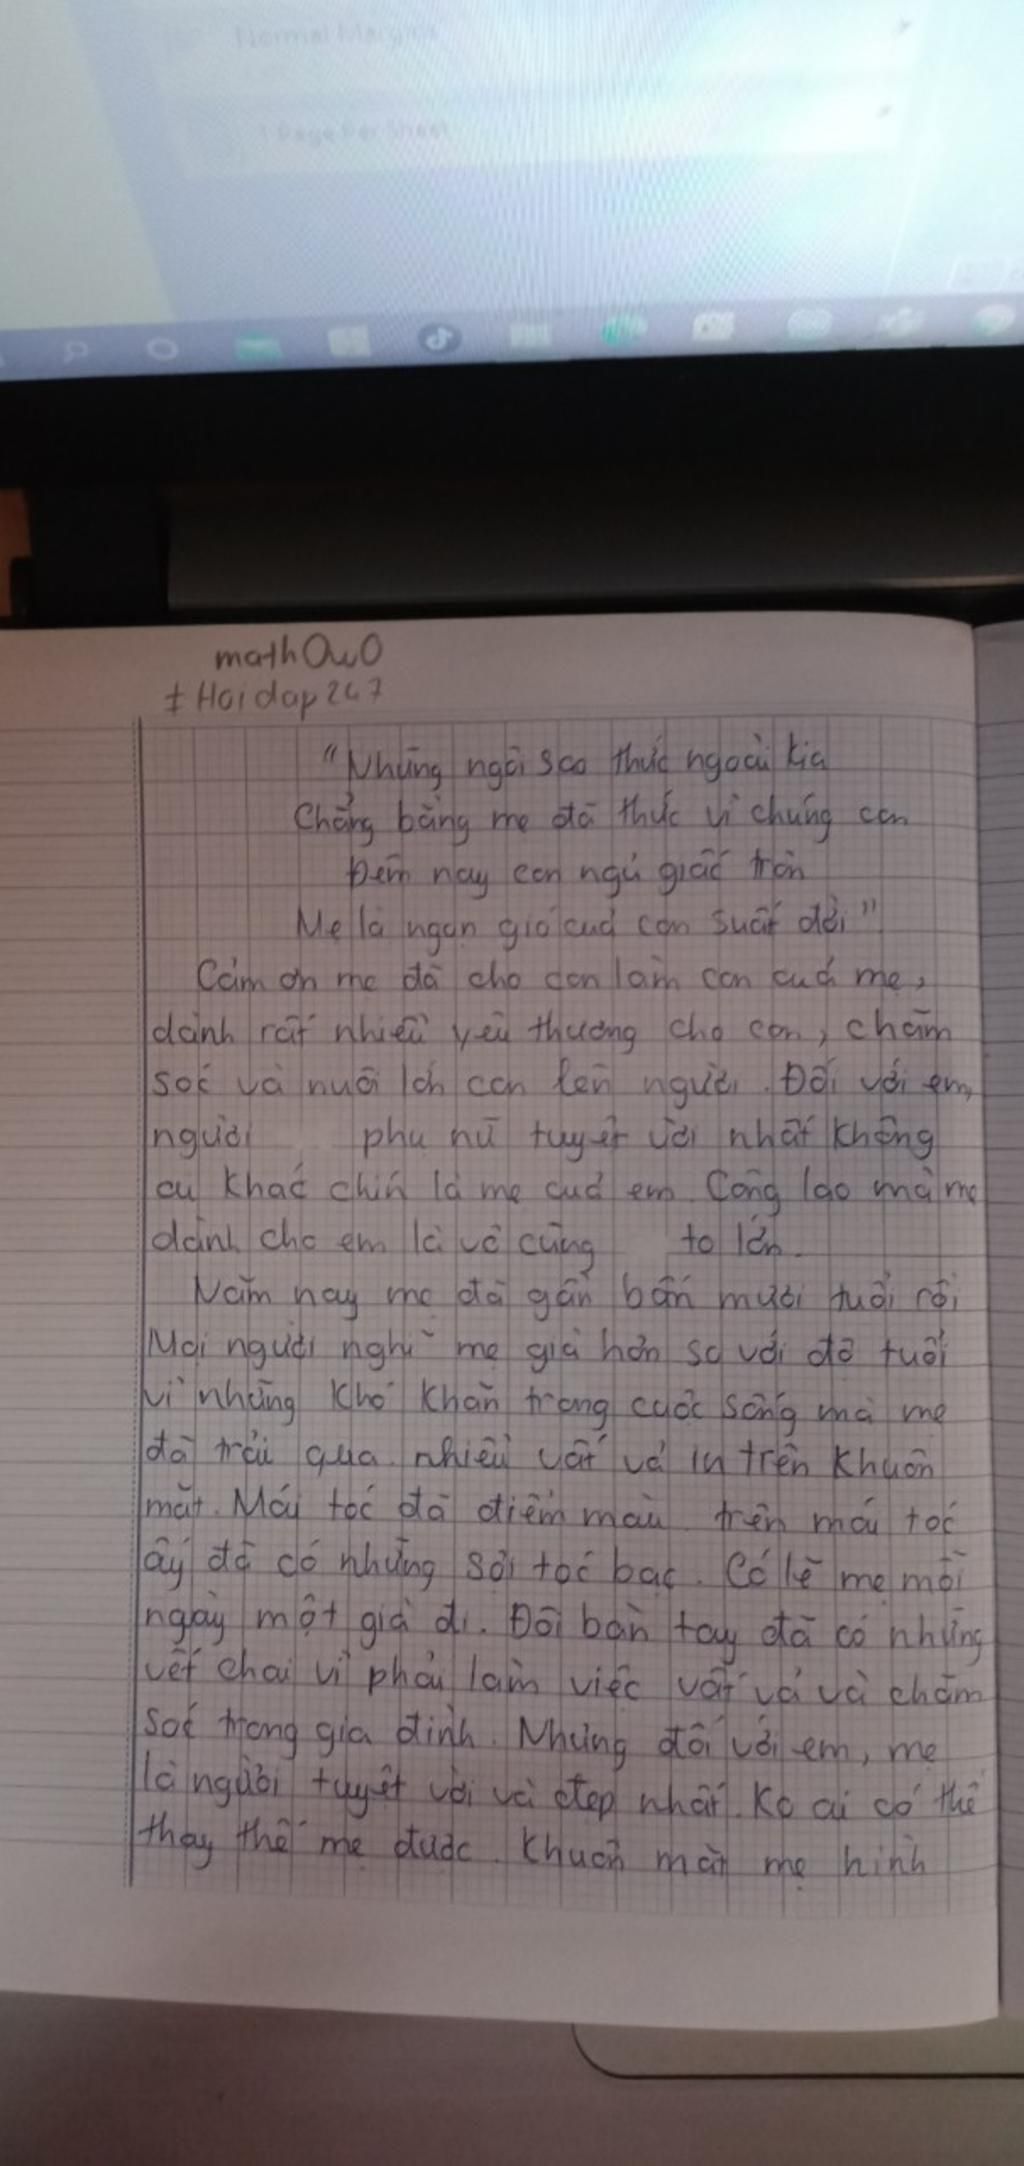 Normal Margins
1 Page Per Sheet
mathOwO
# Hoidap247
"Những ngôi sao thức ngoài kia
Chẳng bằng mẹ đã thức vì chúng con
Đêm nay con ngủ giấc tròn
Mẹ là ngọn gió của con suốt đời"
Cảm ơn mẹ đã cho con làm con của mẹ,
dành rất nhiều yêu thương cho con, chăm
sóc và nuôi lớn con lên người. Đối với em,
người phụ nữ tuyệt vời nhất không
au khác chín là mẹ của em. Công lao mà mẹ
dành cho em là vô cùng to lớn.
Năm nay mẹ đã gần bốn mươi tuổi rồi
Mọi người nghĩ mẹ già hơn so với độ tuổi
vì những khó khăn trong cuộc sống mà mẹ
đã trải qua. nhiều vất vả in trên khuôn
mặt. Mái tóc đã điểm màu trên mái tóc
ấy đã có những sợi tóc bạc. Có lẽ mẹ mỗi
ngày một già đi. Đôi bàn tay đã có những
vết chai vì phải làm việc vất vả và chăm
sóc trong gia đình. Nhưng đối với em, mẹ
là người tuyệt vời và đẹp nhất. Ko ai có thể
thay thế mẹ được. Khuôn mặt mẹ hình